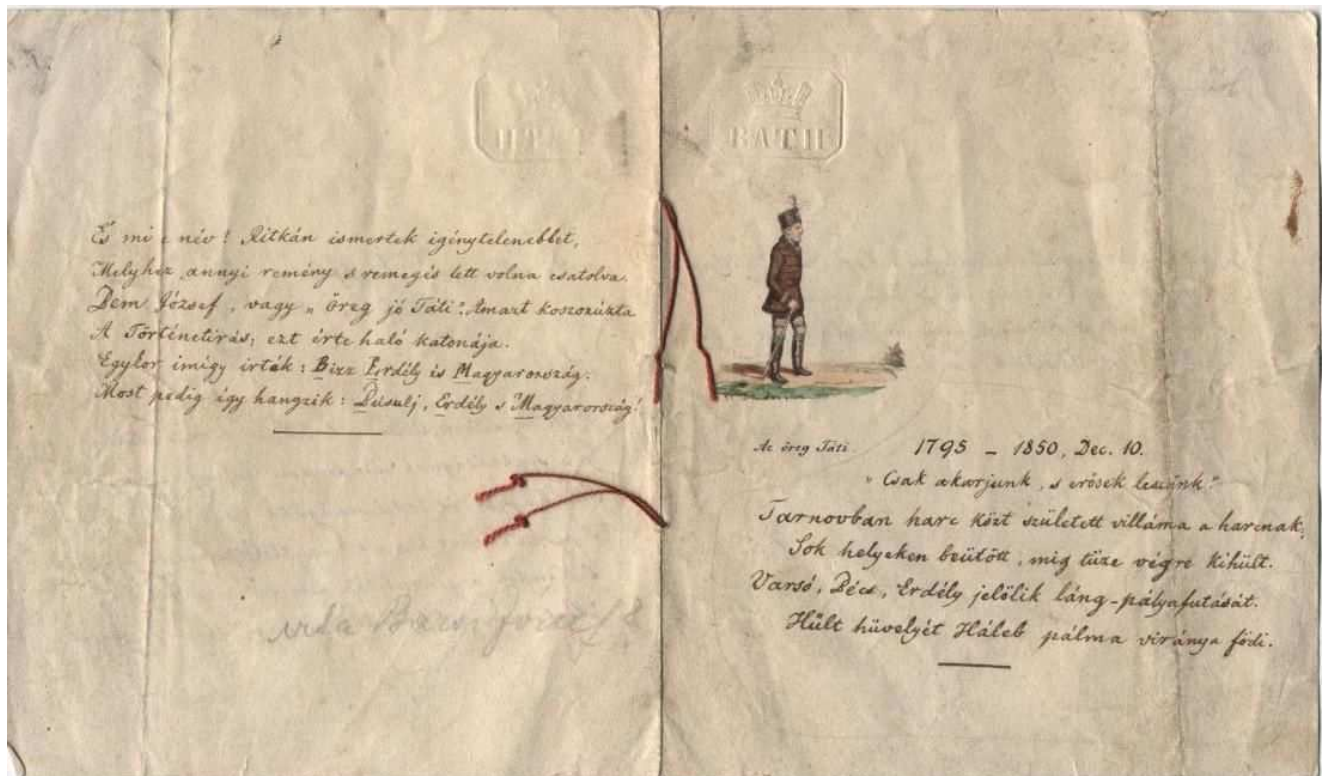 És mi e név! Ritkán ismertek igénytelenebbet,
Melyhez annyi remény s remegés lett volna csatolva.
Bem József, vagy „öreg jó Táti”. Amazt koszorúzta
A Történetirás; ezt érte haló katonája.
Egykor imígy irták: Bizz Erdély és Magyarország.
Most pedig így hangzik: Búsulj, Erdély s Magyarország!
BATH
Az öreg Táti. 1795 – 1850, Dec. 10.
„Csak akarjunk, s erősek leszünk”
Tarnovban harc közt született villáma a harcnak;
Sok helyeken beütött, mig tüze végre kihült.
Varsó, Bécs, Erdély jelölik láng-pályafutását.
Hült hüvelyét Háleb pálma viránya födi.